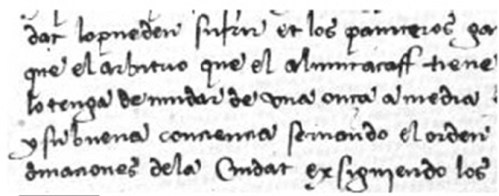 dat lo pueden sufrir et los paniceros ga
que el arbitrio que el almutacaff tiene
lo tenga de mudar de una onça a media
y su buena conciencia seruando el orden
dinaciones dela Ciudat exsiguiendo los